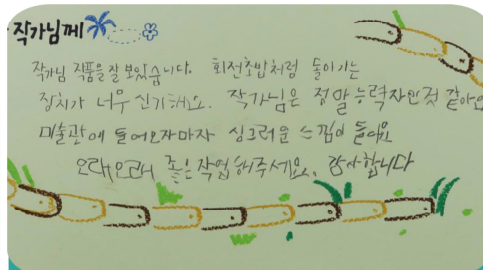 작가님께
작가님 작품을 잘 보았습니다. 회전초밥처럼 돌아가는
장치가 너무 신기해요. 작가님은 정말 능력자인것 같아요
미술관에 들어오자마자 싱그러운 느낌이 들어요
오래오래 좋은 작업 해주세요. 감사합니다